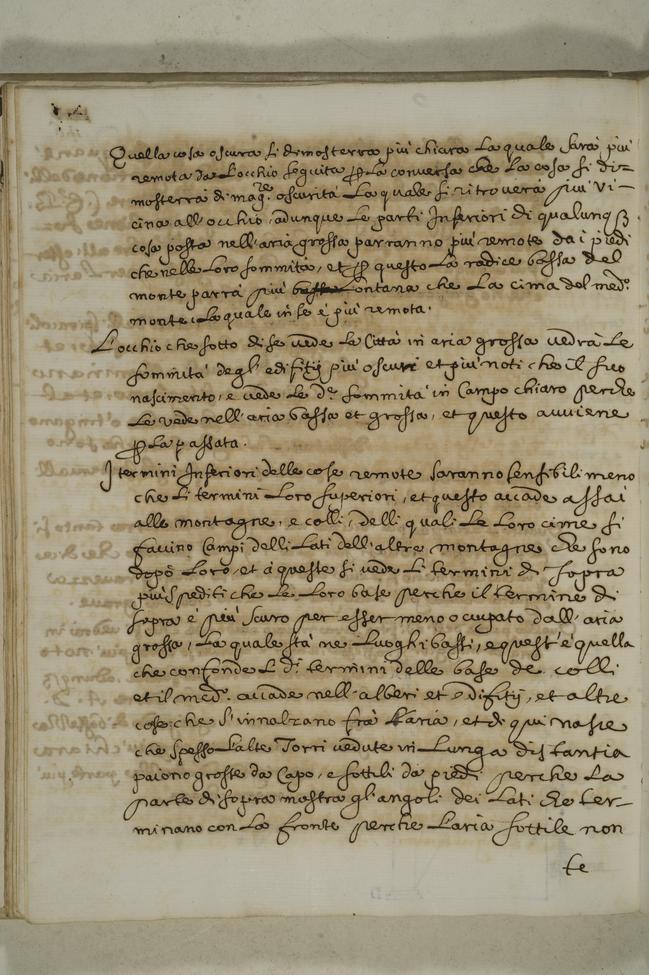 Quella cosa oscura si dimosterra più chiara la quale sara più
remota da l'occhio seguita p la conversa che la cosa si di=
mosterrà di mag.re oscurità la quale si ritroverà più vi-
cina all'occhio, adunque le parti Inferiori di qualunq3
cosa posta nell'aria grossa parranno più remote da i piedi
che nelle loro sommità, et p questo la radice bassa del
monte parrà più lontana che la cima del med.o
monte la quale in se è più remota.
L'occhio che sotto di se vede la Città in aria grossa vedrà le
sommità degl'edifitij più oscuri et più noti che il suo
nascimento, e vede le d.e sommità in Campo chiaro perche
le vede nell'aria bassa et grossa, et questo avviene
p la passata.
I termini Inferiori delle cose remote saranno sensibili meno
che li termini loro superiori, et questo accade assai
alle montagne, e colli, delli quali le loro cime si
faccino Campi delli lati dell'altre montagne che sono
dopò loro, et à queste si vede li termini di sopra
più spediti che le loro base perche il termine di
sopra è più scuro per esser meno occupato dall'aria
grossa, la quale stà ne luoghi bassi, e quest'è quella
che confonde l d.i termini delle base de colli
et il med.o accade nell'alberi et edifitij, et altre
cose che s'innalzano frà l'aria, et di qui nasce
che spesso l'alte Torri vedute in lunga distantia
paiono grosse da Capo, e sottili da piedi perche la
parte di sopra mostra gl'angoli dei lati che ter-
minano con la fronte perche l'aria sottile non
te